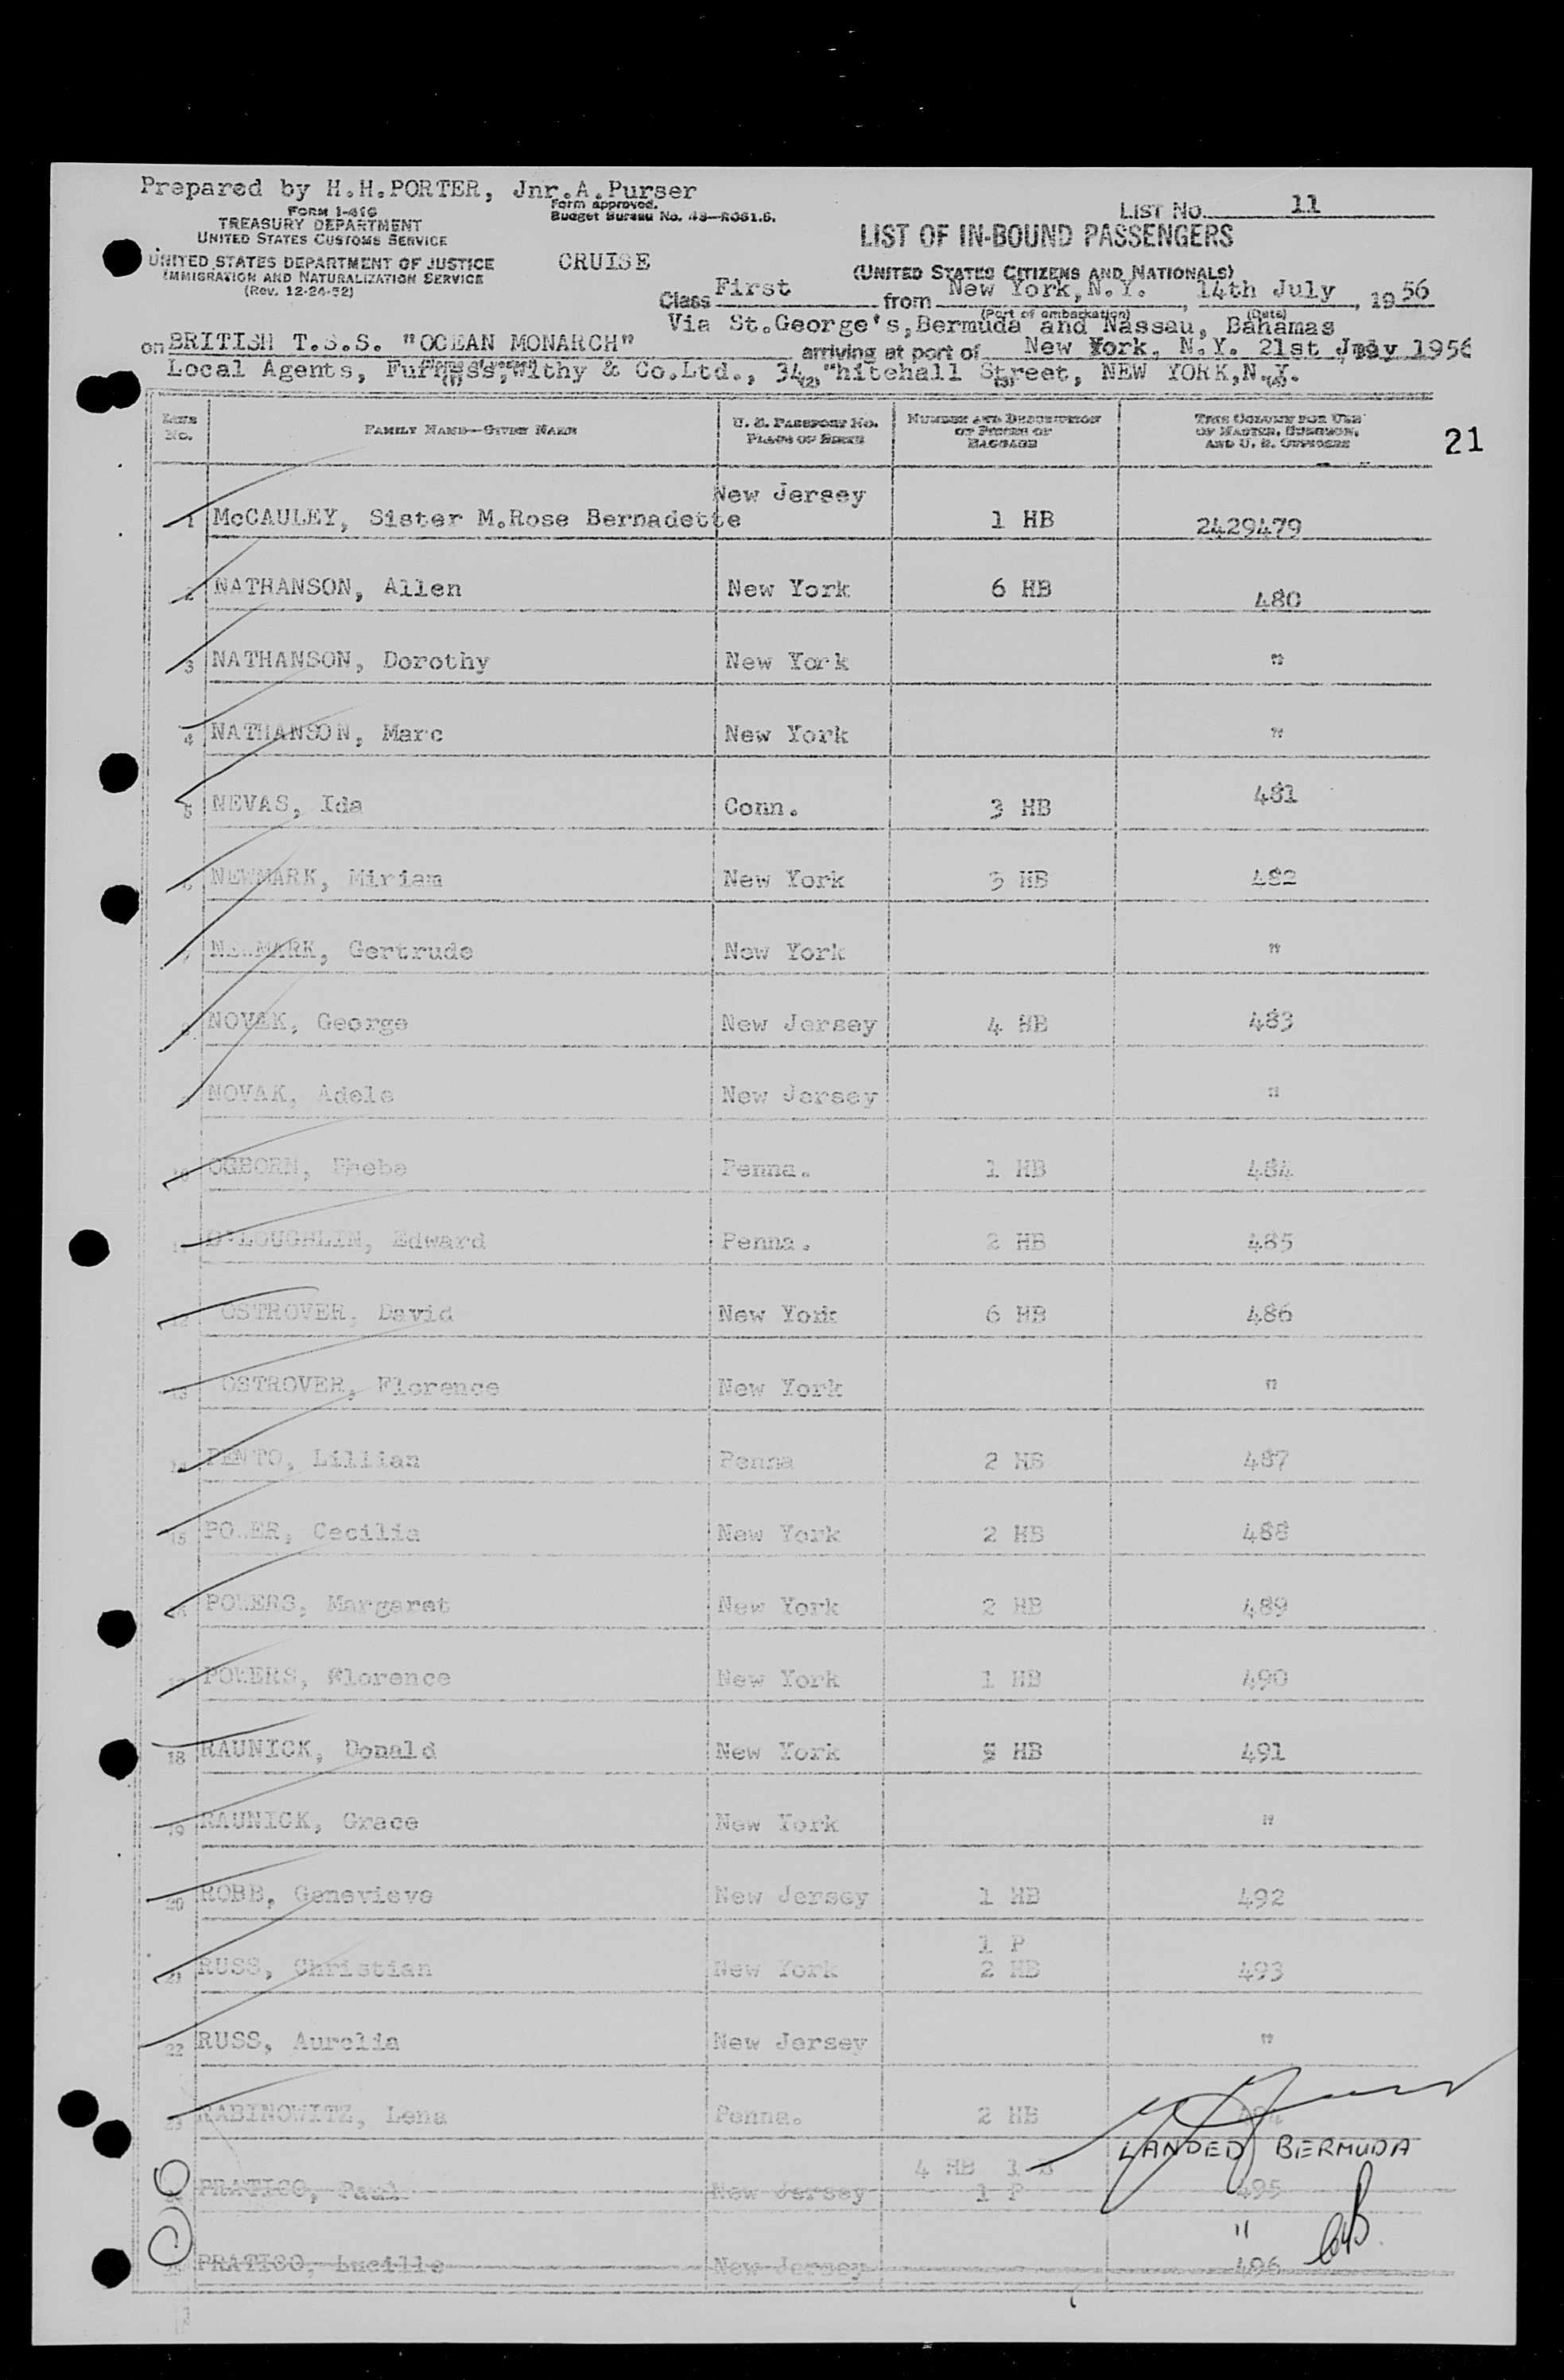 Prepared by H.H.PORTER, Jnr.A.Purser
FORM I-416
TREASURY DEPARTMENT
UNITED STATES CUSTOMS SERVICE
Form approved.
Budget Bureau No. 43—R061.6.
LIST NO. 11
LIST OF IN-BOUND PASSENGERS
UNITED STATES DEPARTMENT OF JUSTICE
IMMIGRATION AND NATURALIZATION SERVICE
(Rev. 12-24-52)
CRUISE
(UNITED STATES CITIZENS AND NATIONALS)
Class First from New York, N.Y. , 14th July , 1956
(Port of embarkation) (Date)
Via St.George's, Bermuda and Nassau, Bahamas
on BRITISH T.S.S. "OCEAN MONARCH" arriving at port of New York, N.Y. 21st July 1956
Local Agents, Furness, Withy & Co.Ltd., 34, Whitehall Street, NEW YORK, N.Y.
LINE NO. FAMILY NAME—GIVEN NAME U. S. PASSPORT NO. PLACE OF BIRTH NUMBER AND DESCRIPTION OF PIECES OF BAGGAGE THIS COLUMN FOR USE OF MASTER, SURGEON, AND U. S. OFFICERS
21
1 McCAULEY, Sister M.Rose Bernadette New Jersey 1 HB 2429479
2 NATHANSON, Allen New York 6 HB 480
3 NATHANSON, Dorothy New York "
4 NATHANSON, Marc New York "
5 NEVAS, Ida Conn. 3 HB 481
6 NEWMARK, Miriam New York 3 HB 482
7 NEWMARK, Gertrude New York "
8 NOVAK, George New Jersey 4 HB 483
9 NOVAK, Adele New Jersey "
10 OGBORN, Pheba Penna. 1 HB 484
11 O'LOUGHLIN, Edward Penna. 2 HB 485
12 OSTROVER, David New York 6 HB 486
13 OSTROVER, Florence New York "
14 PENTO, Lillian Penna 2 HB 487
15 POWER, Cecilia New York 2 HB 488
16 POWERS, Margaret New York 2 HB 489
17 POWERS, Florence New York 1 HB 490
18 RAUNICK, Donald New York 5 HB 491
19 RAUNICK, Grace New York "
20 ROBB, Genevieve New Jersey 1 HB 492
21 RUSS, Christian New York 1 P 2 HB 493
22 RUSS, Aurelia New Jersey "
23 RABINOWITZ, Lena Penna. 2 HB 494
LANDED BERMUDA
24 PRATICO, Paul New Jersey 4 HB 1 P 495
25 PRATICO, Lucille New Jersey " 496